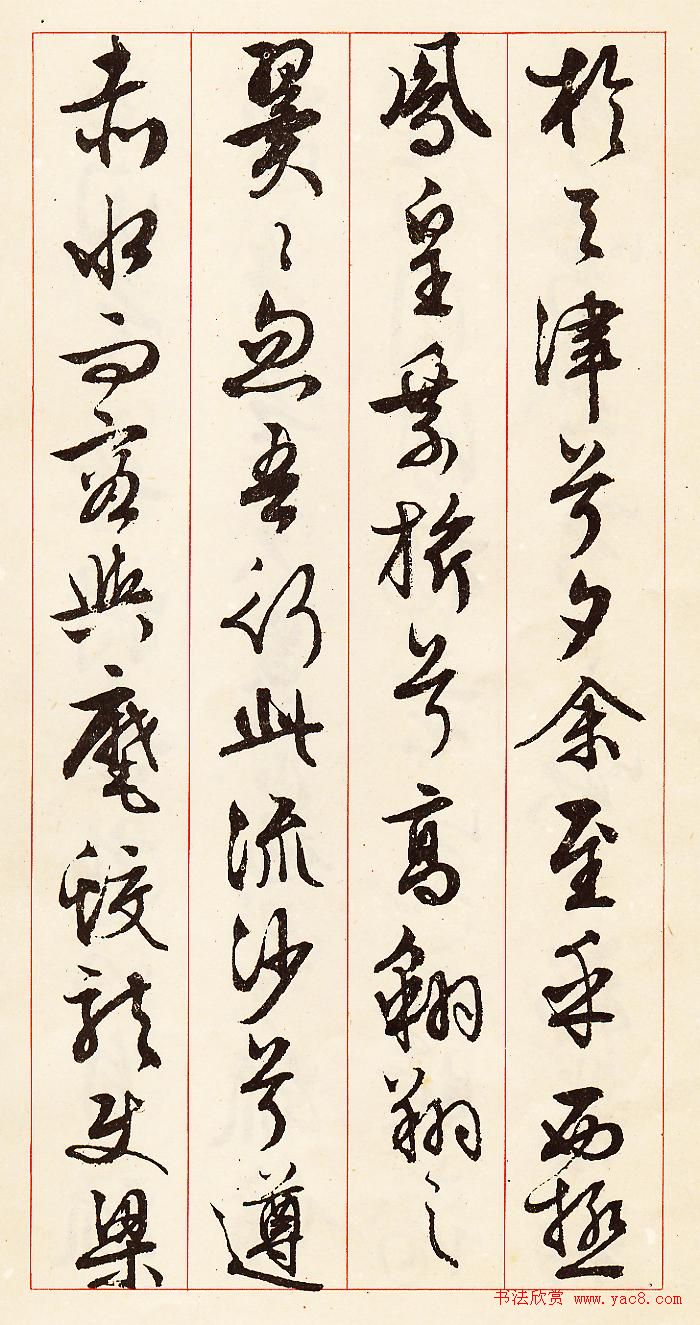 於天津兮夕余至乎西極
鳳皇承旂兮高翱翔之
翼〻忽吾行此流沙兮遵
赤水而容與麾蛟龍使梁
书法欣赏 www.yac8.com